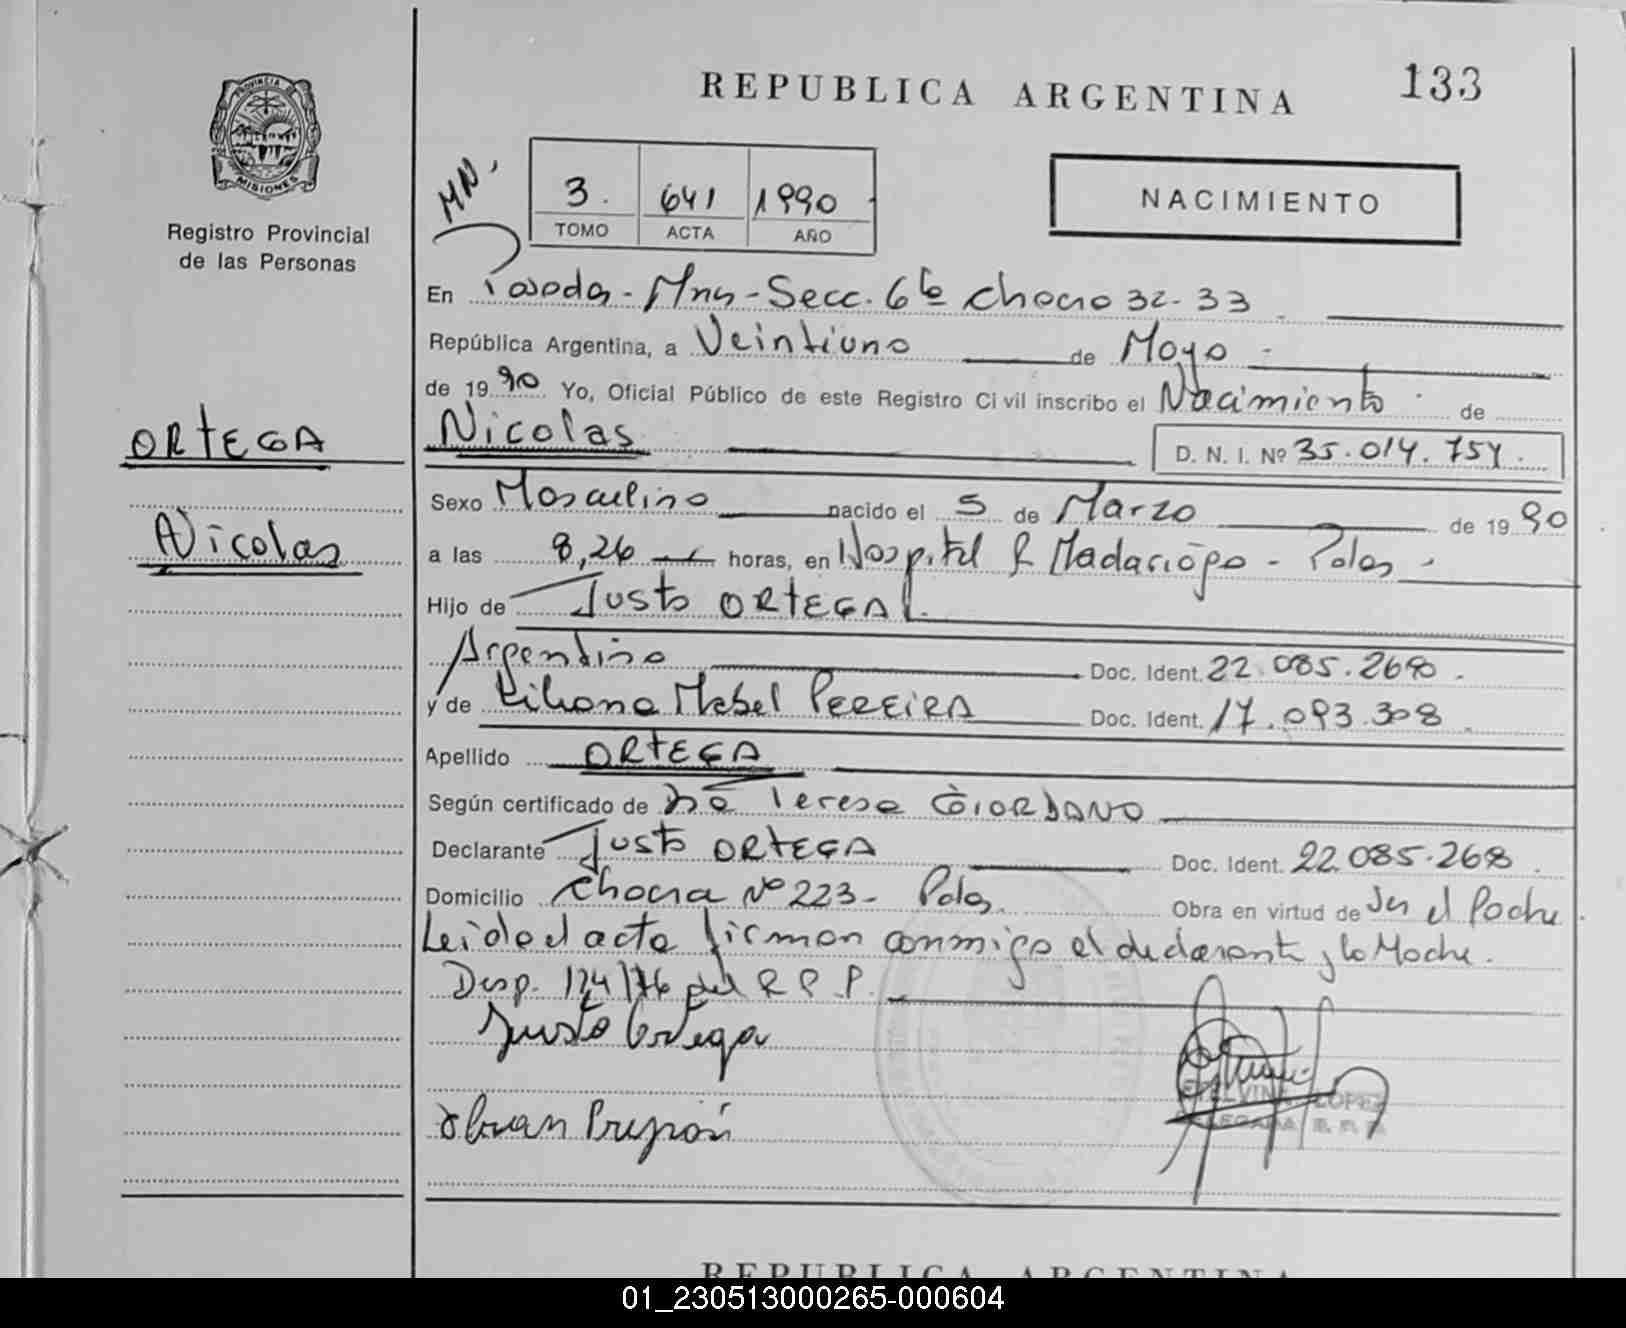 REPUBLICA ARGENTINA 133
PROVINCIA DE
MISIONES
Registro Provincial
de las Personas
MN.
3. 641 1990
TOMO ACTA AÑO
NACIMIENTO
En Posadas - Mns - Secc. 6ta Chacra 32-33
República Argentina, a Veintiuno de Mayo
de 1990 Yo, Oficial Público de este Registro Civil inscribo el Nacimiento de
ORTEGA
Nicolas
Nicolas
D. N. I. Nº 35.014.754.
Sexo Masculino nacido el 5 de Marzo de 1990
a las 8,26 horas, en Hospital R Madariaga - Pdas -
Hijo de Justo ORTEGA
Argentino Doc. Ident. 22.085.268.
y de Liliana Mabel PEREIRA Doc. Ident. 17.093.308
Apellido ORTEGA
Según certificado de Teresa GIORDANO
Declarante Justo ORTEGA Doc. Ident. 22.085.268
Domicilio Chacra Nº 223- Pdas. Obra en virtud de Ser el Padre.
Leida el acta firman conmigo el declarante y la Madre.
Disp. 124/76 del R.P.P.
Justo Ortega
LOPEZ
REPUBLICA ARGENTINA
01_230513000265-000604